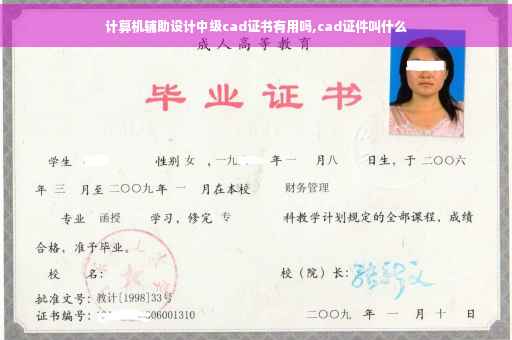 计算机辅助设计中级cad证书有用吗,cad证件叫什么
成人高等教育
毕业证书
学生 性别 女 ,一九 年一 月八 日生，于二〇〇六
年 三 月至二〇〇九年 一 月在本校 财务管理
专业 函授 学习，修完 专 科教学计划规定的全部课程，成绩
合格，准予毕业。
校 名： 校（院）长：
批准文号：教计[1998]33号
证书编号： 06001310 二〇〇九 年 一 月 十 日